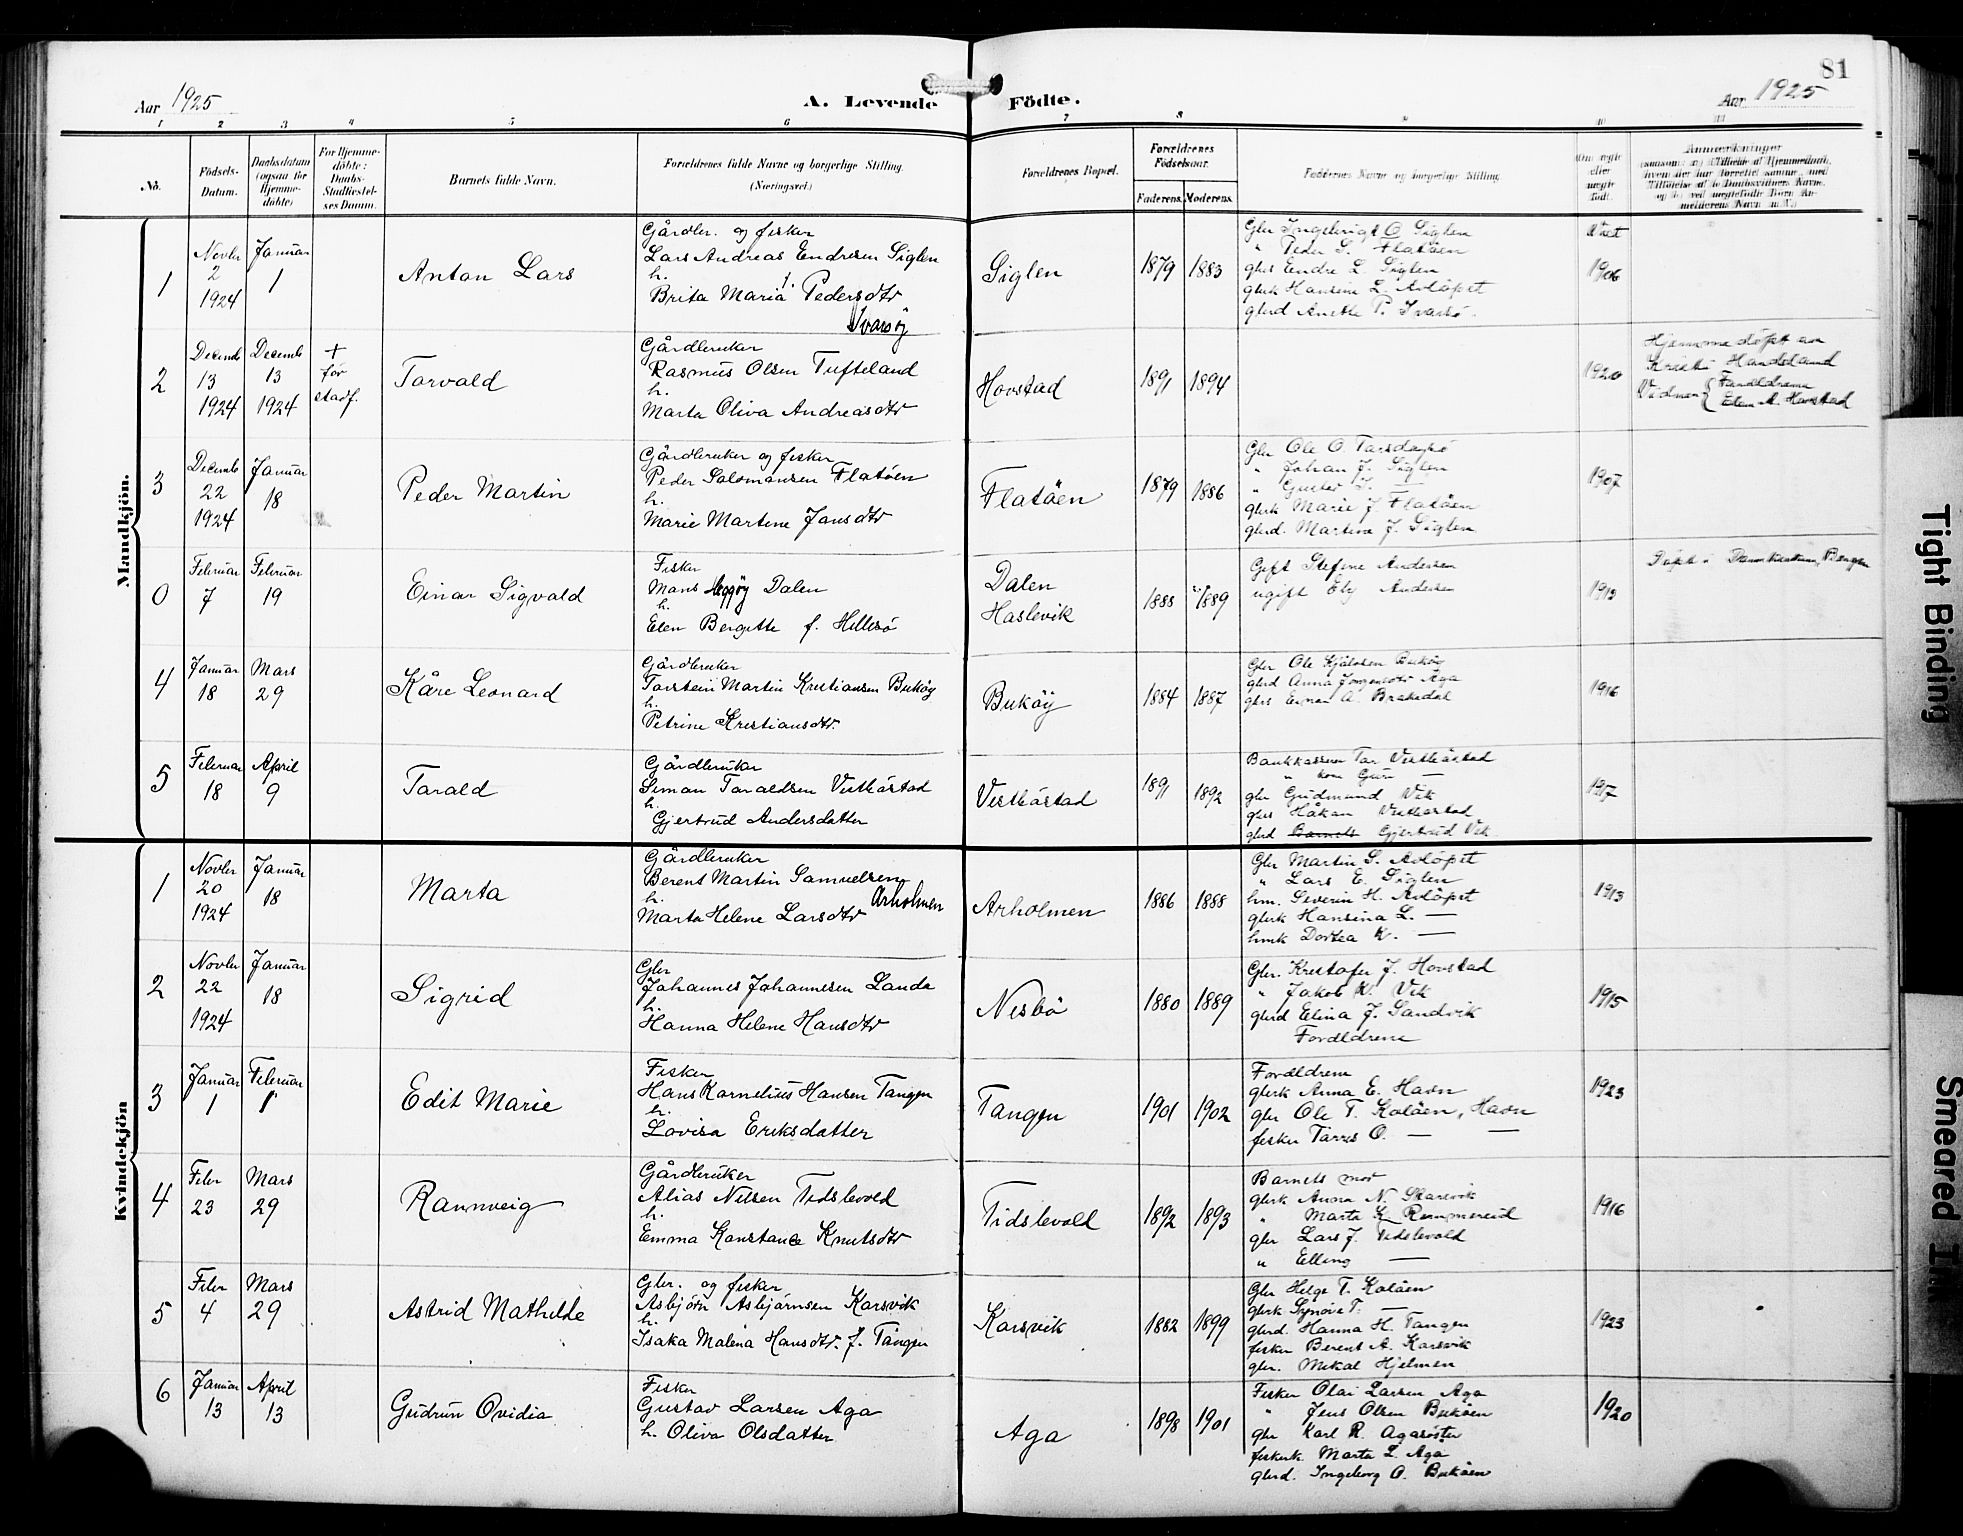 Aar 1925
A. Levende
Födte.
81
Aar 1925
1 2 3 4 5 6 7 8 9 10 11
No.
Födsels-
Datum.
Daabsdatum
(ogsaa for
Hjemme-
döbte)
For Hjemme-
döbte:
Daabs-
Stadfæstel-
ses Datum.
Barnets fulde Navn.
Forældrenes fulde Navne og borgerlige Stilling.
(Næringsvei.)
Forældrenes Bopæl.
Forældrenes
Födselsaar.
Faderens. Moderens.
Faddernes Navne og borgerlige Stilling
Om ægte
eller
uægte
født.
Anmærkninger
Mandkjön.
1
Novbr
2
1924
Januar
1
Anton Lars
Gårdbr. og fisker
Lars Andreas Endresen Siglen
h.
Brita Maria Pedersdtr
Ivarsøy
Siglen
1879 1883
Gbr Ingebrigt O Siglen
" Peder S. Flatöen
gbs Endre L. Siglen
gbrk Hansine L. Avlöpet
gbrd Anette P. Ivarsö.
1906
2
Decemb
13
1924
Decemb
13
1924
+
før
stadf.
Torvald
Gårdbruker
Rasmus Olsen Tufteland
h.
Marta Oliva Andreasdtr
Hovstad
1891 1894
1920
Hjemmedöpt av
Kristi Handeland
Vidner Foreldrene
Elen A. Hovstad
3
Decemb
22
1924
Januar
18
Peder Martin
Gårdbruker og fisker
Peder Salomonsen Flatöen
h.
Marie Martine Jansdtr
Flatöen
1879 1886
Gbr Ole O.
" Johan J. Siglen
" Gustav J. —
gbrk Marie J Flatöen
gbrd. Martine J. Siglen
1907
0
Februar
7
Februar
19
Einar Sigvald
Fisker
Mons Dalen
h.
Elen Bergitte f. Hillesö
Dalen
Haslevik
1888 1889
Gift Stefine Andersen
ugift Andersen
1913
Döpt i Bergen
4
Januar
18
Mars
29
Kåre Leonard
Gårdbruker
Torstein Martin Kristiansen Buköy
h.
Petrine Kristiansdtr.
Buköy
1884 1887
Gbr Ole Buköy
gbrd Anna Aga
gbs A. Brakedal
1916
5
Februar
18
April
9
Torald
Gårdbruker
Simon Toraldsen Vesthåstad
h.
Gjertrud Andersdatter
Vesthåstad
1891 1892
Bankkasserer Tor Vesthåstad
" kone Guri —
gbr Gudmund Vik
gbs Håkon Vesthåstad
gbrd Barnets Gjertrud Vik
1917
Kvindekjön
1
Novbr
20
1924
Januar
18
Marta
Gårdbruker
Berent Martin Samuelsen
Arholmen
h.
Marta Helene Larsdtr
Arholmen
1886 1888
Gbr Martin S. Avlöpet
" Lars E. Siglen
hm. Severin H. Avlöpet
gbrk Hansina L. —
hmk Dortea K. —
1913
2
Novbr
22
1924
Januar
18
Sigrid
Gbr
Johannes Johannesen Lande
h.
Hanna Helene Hansdtr
Nesbö
1880 1889
Gbr. Kristofer J. Hovstad
" Jakob K. Vik
gbrd Elina J. Sandvik
Foreldrene
1915
3
Januar
1
Februar
1
Edit Marie
Fisker
Hans Kornelius Hansen Tangen
h.
Lovisa Eriksdatter
Tangen
1901 1902
Foreldrene
gbrk Anna E. Havn
gbr Ole T. Kolöen, Havn
fisker Torres O. — —
1923
4
Febr
23
Mars
29
Rannveig
Gårdbruker
Alias Nilsen Tidslevold
h.
Emma Konstance Knutsdtr
Tidslevold
1892 1893
Barnets mor
gbrk Anna N. Skarsvik
" Marta K. Remmereid
gbr Lars J. Tidslevold
" Elling —
1916
5
Febr
4
Mars
29
Astrid Mathilde
Gbr. og fisker
Asbjörn Asbjörnsen Korsvik
h.
Isaka Malena Hansdtr. f. Tangen
Korsvik
1882 1899
Gbr Helge T. Kolöen
gbrk Synöve T. —
gbrd. Hanna H. Tangen
fisker Berent A. Korsvik
gbr. Mikal Hjelmen
1923
6
Januar
13
April
13
Gudrun Ovidia
Fisker
Gustav Larsen Aga
h. Oliva Olsdatter
Aga
1898 1901
Fisker Olai Larsen Aga
" Jens Olsen Buköen
gbr Karl R. Agasöster
fiskerk. Marta L. Aga
gbrd. Ingeborg O. Buköen
1920
Tight Binding
Smeared Ink